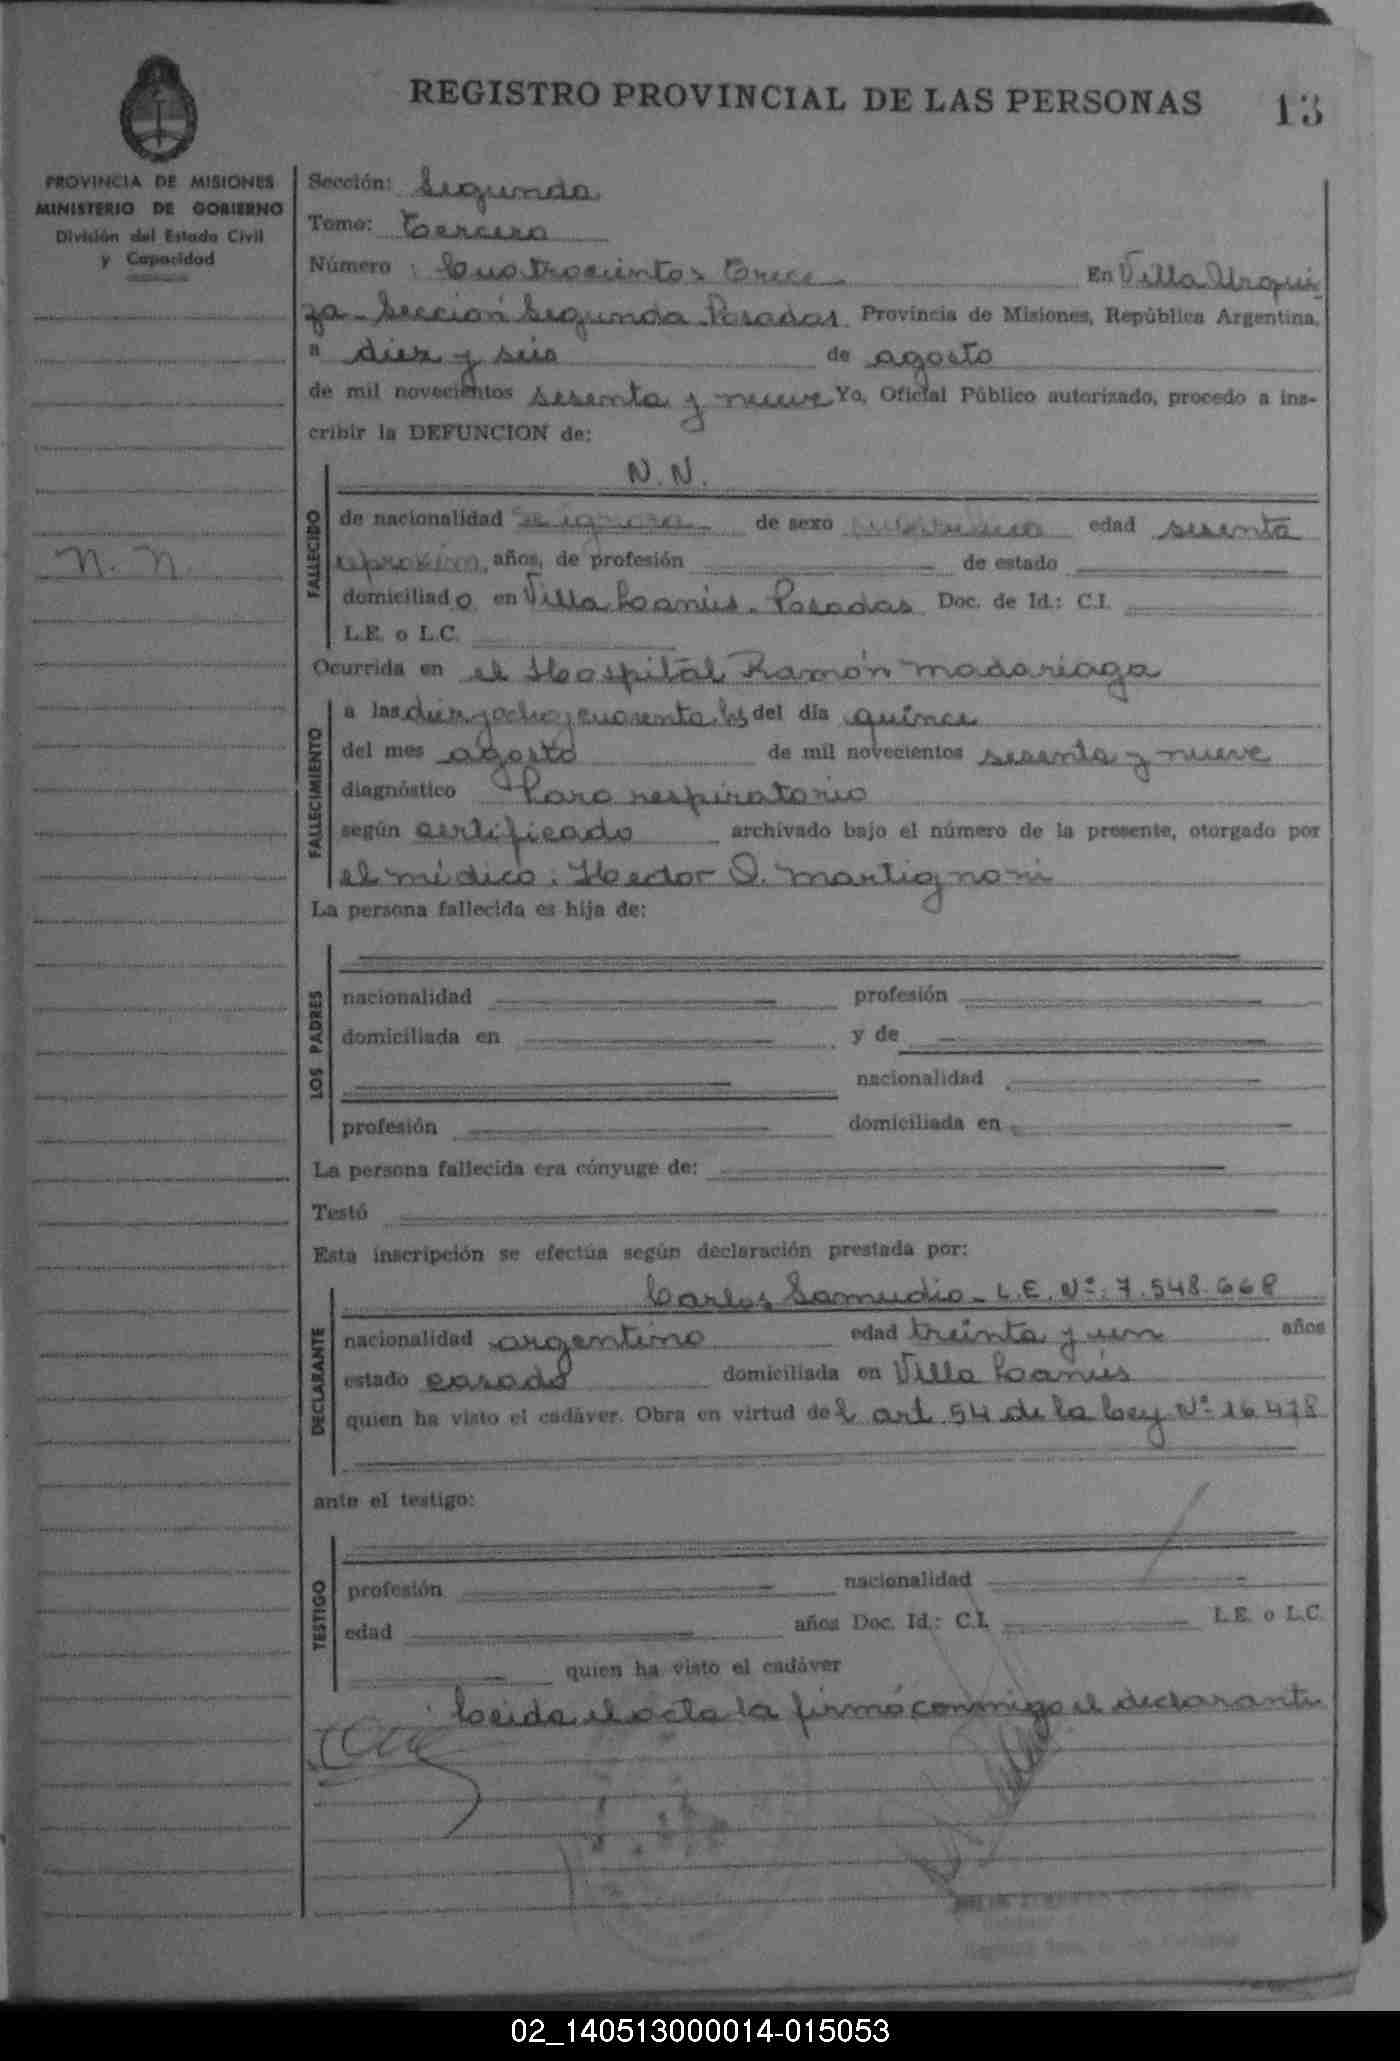 REGISTRO PROVINCIAL DE LAS PERSONAS 13
PROVINCIA DE MISIONES
MINISTERIO DE GOBIERNO
División del Estado Civil
y Capacidad
N. N.
Sección: Segunda
Tomo: Tercero
Número: Cuatrocientos Trece En Villa Urqui
za - Sección Segunda Posadas. Provincia de Misiones, República Argentina,
a diez y seis de agosto
de mil novecientos sesenta y nueve Yo, Oficial Público autorizado, procedo a ins-
cribir la DEFUNCION de:
N. N.
FALLECIDO
de nacionalidad se ignora de sexo masculino edad sesenta
aproxim. años, de profesión de estado
domiciliado en Villa Lanús - Posadas Doc. de Id.: C.I.
L.E. o L.C.
Ocurrida en el Hospital Ramón Madariaga
FALLECIMIENTO
a las diez y ocho y cuarenta hs del día quince
del mes agosto de mil novecientos sesenta y nueve
diagnóstico Paro respiratorio
según certificado archivado bajo el número de la presente, otorgado por
el médico: Hector O. Martignoni
La persona fallecida es hija de:
LOS PADRES
nacionalidad profesión
domiciliada en y de
nacionalidad
profesión domiciliada en
La persona fallecida era cónyuge de:
Testó
Esta inscripción se efectúa según declaración prestada por:
DECLARANTE
Carlos Samudio - L.E. Nº: 7.548.668
nacionalidad argentino edad treinta y un años
estado casado domiciliada en Villa Lanús
quien ha visto el cadáver. Obra en virtud del art. 54 de la Ley Nº 16478
ante el testigo:
TESTIGO
profesión nacionalidad
edad años Doc. Id.: C.I. L.E. o L.C.
quien ha visto el cadáver
Leida el acta la firmó conmigo el declarante
02_140513000014-015053